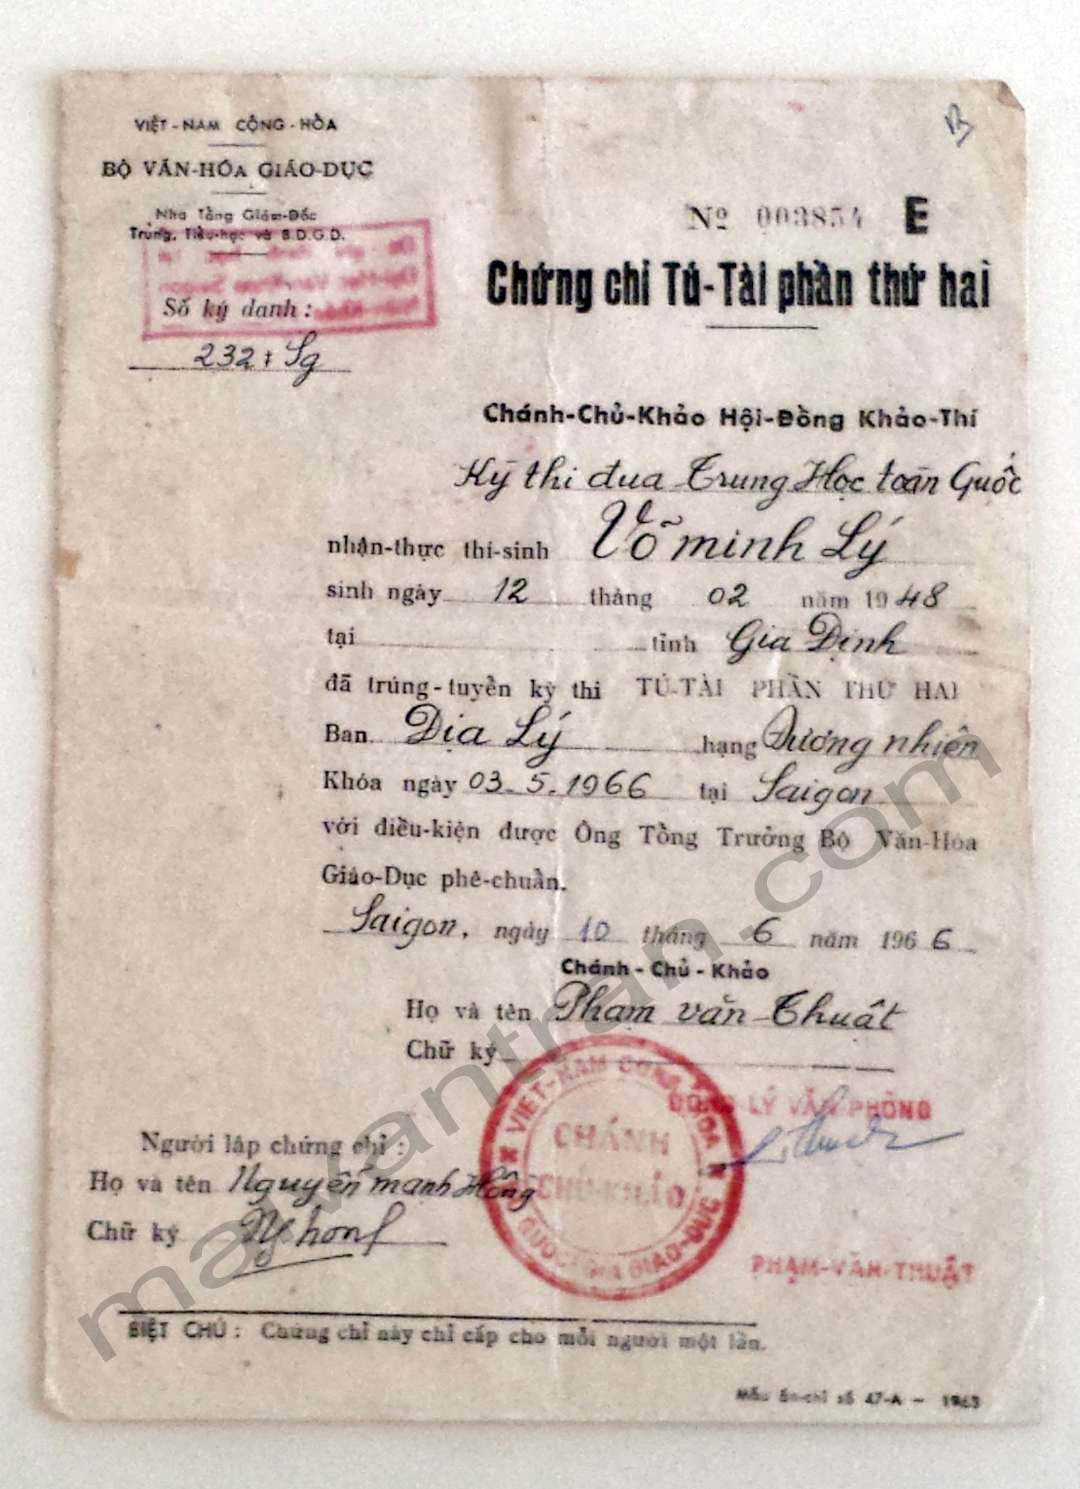 VIỆT-NAM CỘNG-HÒA
BỘ VĂN-HÓA GIÁO-DỤC
Nha Tổng Giám-Đốc
Trung, Tiểu-học và B.D.G.D.
Số ký danh :
232 Sg
Nº 003854 E
Chứng chỉ Tú-Tài phần thứ hai
Chánh-Chủ-Khảo Hội-Đồng Khảo-Thí
Kỳ thi đua Trung Học toàn Quốc
nhận-thực thí-sinh Võ minh Lý
sinh ngày 12 tháng 02 năm 1948
tại tỉnh Gia Định
đã trúng-tuyển kỳ thi TÚ-TÀI PHẦN THỨ HAI
Ban Địa Lý hạng Đương nhiên
Khóa ngày 03.5.1966 tại Saigon
với điều-kiện được Ông Tổng Trưởng Bộ Văn-Hóa
Giáo-Dục phê-chuẩn.
Saigon, ngày 10 tháng 6 năm 1966
Chánh-Chủ-Khảo
Họ và tên Phạm văn Thuật
Chữ ký
ĐỔNG-LÝ VĂN-PHÒNG
VIỆT-NAM CỘNG-HÒA
CHÁNH
CHỦ-KHẢO
QUỐC-GIA GIÁO-DỤC
PHẠM-VĂN-THUẬT
Người lập chứng chỉ :
Họ và tên Nguyễn mạnh Hồng
Chữ ký
BIỆT CHÚ : Chứng chỉ này chỉ cấp cho mỗi người một lần.
Mẫu ấn-chỉ số 47-A — 1963
maivantran.com